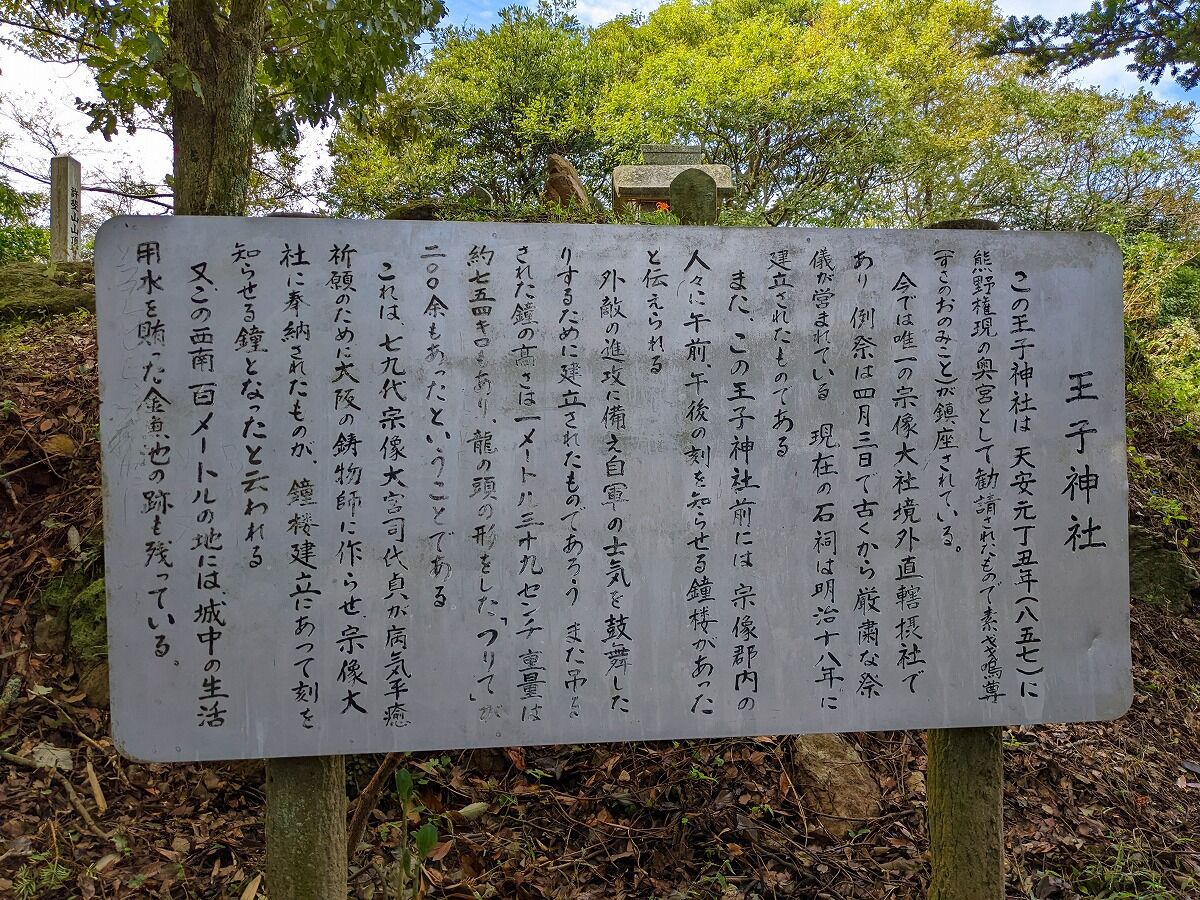 王子神社
この王子神社は 天安元丁丑年(八五七)に
熊野権現の奥宮として勧請されたもので素戔嗚尊
(すさのおのみこと)が鎮座されている。
今では唯一の宗像大社境外直轄摂社で
あり 例祭は四月三日で古くから厳粛な祭
儀が営まれている 現在の石祠は明治十八年に
建立されたものである
また、この王子神社前には 宗像郡内の
人々に午前、午後の刻を知らせる鐘楼があった
と伝えられる
外敵の進攻に備え自軍の士気を鼓舞した
りするために建立されたものであろう また吊る
された鐘の高さは一メートル三十九センチ重量は
約七五四キロもあり、龍の頭の形をした「つりて」が
二〇〇余もあったということである
これは、七九代宗像大宮司代貞が病気平癒
祈願のために大阪の鋳物師に作らせ、宗像大
社に奉納されたものが、鐘楼建立にあって刻を
知らせる鐘となったと云われる
又この西南百メートルの地には、城中の生活
用水を賄った金魚池の跡も残っている。